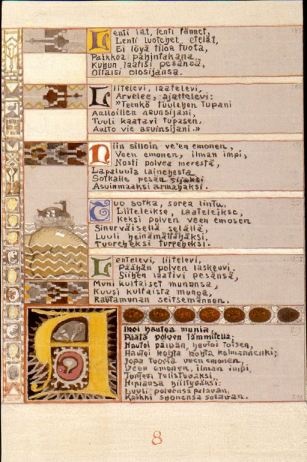 Lenti iät, lenti lännet,
Lenti luotehet, etelät,
Ei löyä tiloa tuota,
Paikkoa pahintakana,
Kuhun laatisi pesänsä,
Ottaisi olosijansa.
Liitelevi, laatelevi,
Arvelee, ajattelevi:
»Teenkö tuulehen tupani
Aalloillen asuinsijani,
Tuuli kaatavi tupasen,
Aalto vie asuinsijani.»
Niin silloin ve'en emonen,
Veen emonen, ilman impi,
Nosti polvea merestä,
Lapaluuta lainehesta
Sotkalle pesän sijaksi
Asuinmaaksi armahaksi.
Tuo sotka, sorea lintu,
Liiteleikse, laateleikse,
Keksi polven veen emosen
Sinerväisellä selällä,
Luuli heinämättähäksi,
Tuoreheksi turpeheksi.
Lentelevi, liitelevi,
Päähän polven laskeuvi.
Siihen laativi pesänsä,
Muni kultaiset munansa,
Kuusi kultaista munoa,
Rautamunan seitsemännen.
Alkoi hautoa munia
Päätä polven lämmitellä;
Hautoi päivän, hautoi toisen,
Hautoi kohta kolmannenki;
Jopa tuosta veen emonen,
Veen emonen, ilman impi,
Tuntevi tulistuvaksi,
Hipiänsä hiiltyväksi;
Luuli polvensa palavan,
Kaikki suonensa sulavan.
8